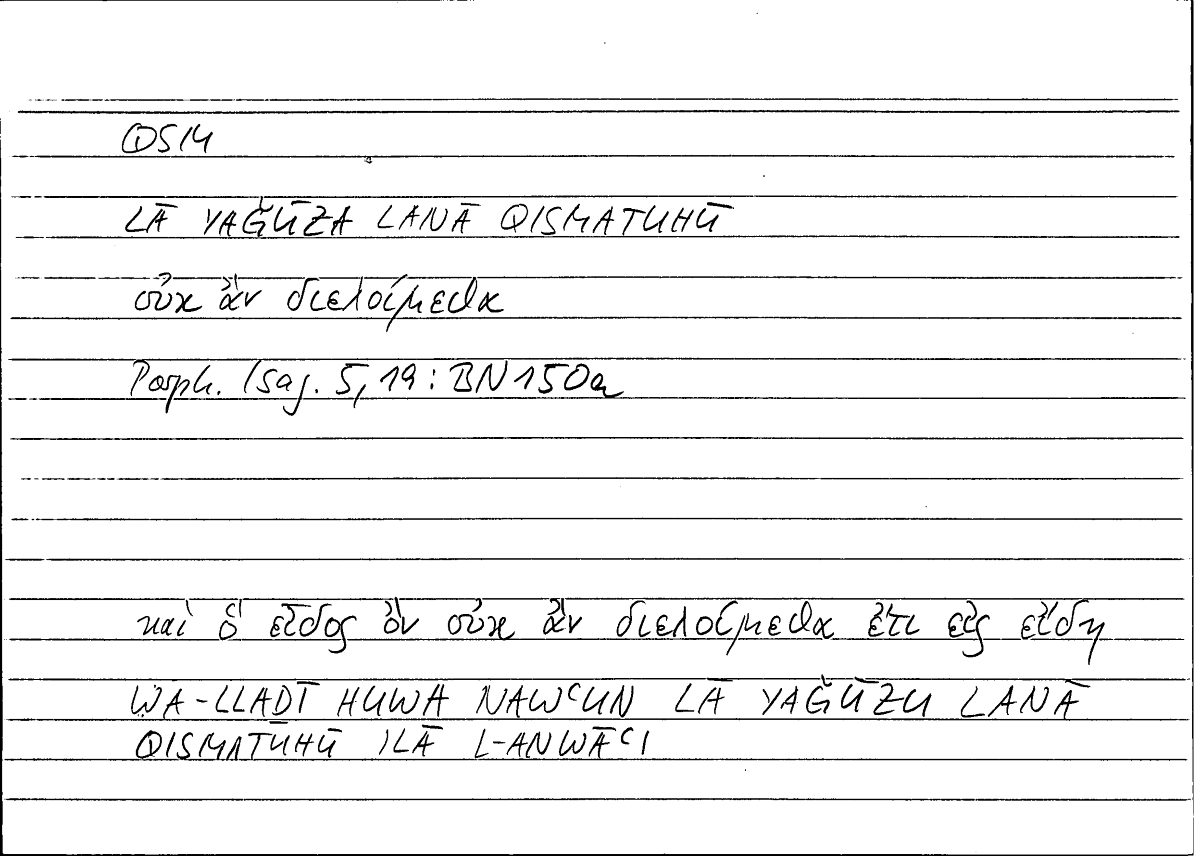 QSM
LĀ YAǦŪZA LANĀ QISMATUHŪ
οὐκ ἂν διελοίμεθα
Porph. Isag. 5, 19 : BN 150a
καὶ ὃ εἶδος ὂν οὐκ ἂν διελοίμεθα ἔτι εἰς εἴδη
WA-LLAḎĪ HUWA NAWʿUN LĀ YAǦŪZU LANĀ
QISMATUHŪ ILĀ L-ANWĀʿI